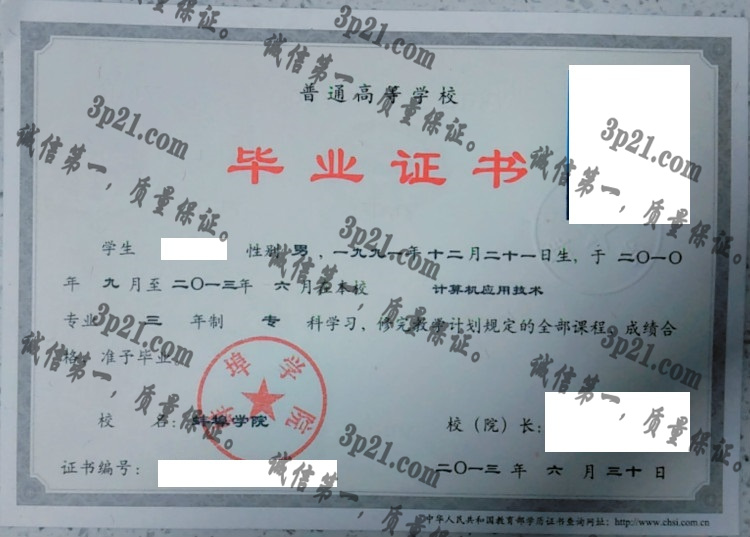 普通高等学校
毕业证书
学生 性别 男，一九九一年 十二月二十一日生，于 二〇一〇
年 九 月至 二〇一三年 六 月在本校 计算机应用技术
专业 三 年制 专 科学习，修完教学计划规定的全部课程，成绩合
格，准予毕业。
蚌埠学院
校 名：蚌埠学院 校（院）长：
证书编号： 二〇一三 年 六 月 三十 日
中华人民共和国教育部学历证书查询网址：http://www.chsi.com.cn
3p21.com
诚信第一，质量保证。
3p21.com
诚信第一，质量保证。
3p21.com
诚信第一，质量保证。
3p21.com
诚信第一，质量保证。
3p21.com
诚信第一，质量保证。
3p21.com
诚信第一，质量保证。
3p21.com
诚信第一，